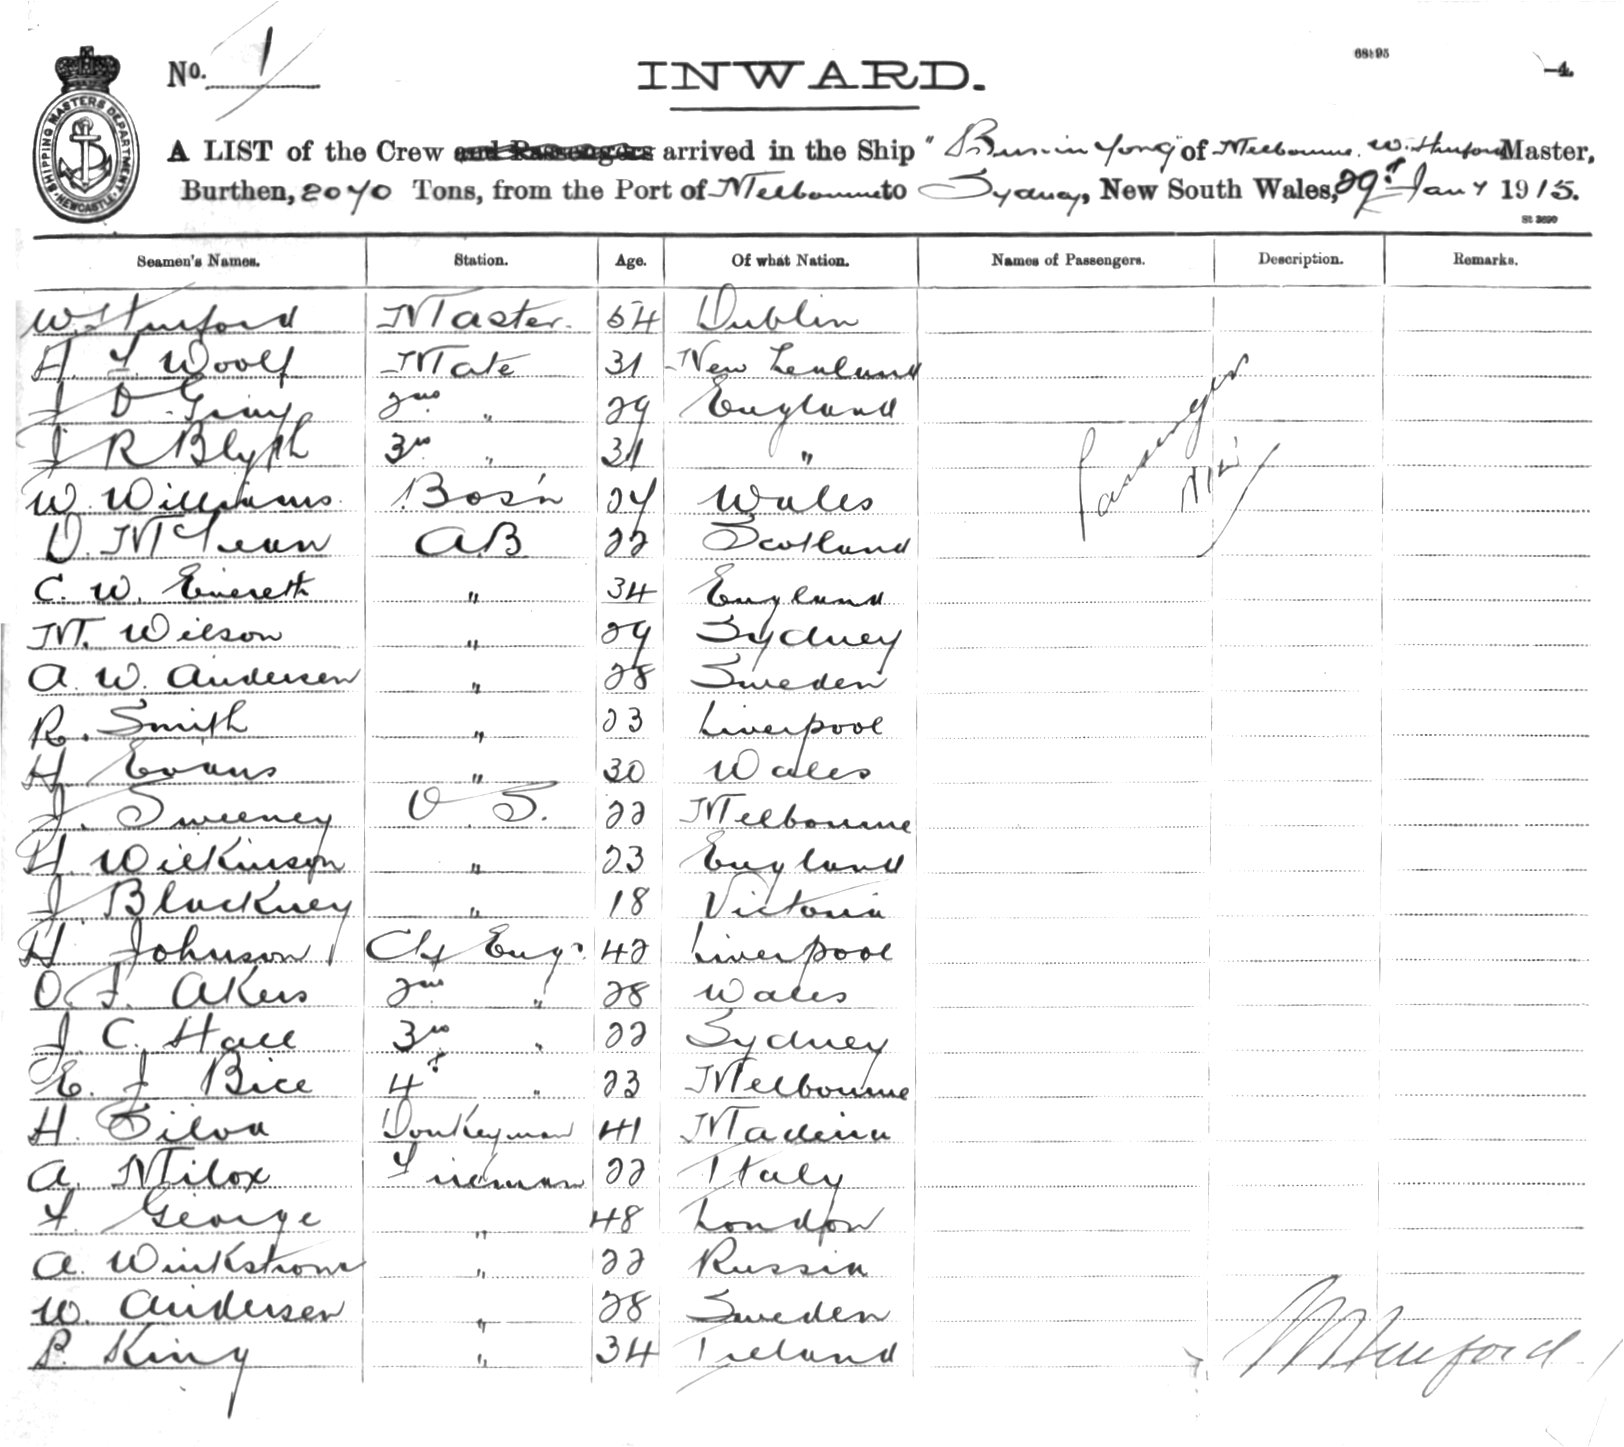 68195
No. 1 INWARD. —4.
SHIPPING MASTERS DEPARTMENT NEWCASTLE
A LIST of the Crew and Passengers arrived in the Ship "Buninyong" of Melbourne, W. Master,
Burthen, 2070 Tons, from the Port of Melbourne to Sydney, New South Wales, 29th Jany 1915.
St 3690
Seamen's Names. Station. Age. Of what Nation. Names of Passengers. Description. Remarks.
W. Master. 54 Dublin
H. F. Woolf Mate 31 New Zealand
J D Gray 2nd " 29 England
J R Blyth 3rd " 31 "
W. Williams Bos'n 27 Wales
D. McLean A.B 22 Scotland
C. W. Everett " 34 England
M. Wilson " 29 Sydney
A. W. Andersen " 28 Sweden
R. Smith " 23 Liverpool
H Evans " 30 Wales
J. Sweeney O.S. 22 Melbourne
H. Wilkinson " 23 England
J. Blackney " 18 Victoria
H Johnson Chf Engr 42 Liverpool
O. F. Akers 2nd " 28 Wales
J. C. Hall 3rd " 22 Sydney
E. J Bice 4th " 23 Melbourne
H. Silva Donkeyman 41 Madeira
A. Milox Fireman 22 Italy
F. George " 48 London
A. Winkstrom " 22 Russia
W. Andersen " 28 Sweden
P. King " 34 Ireland
Passengers
Nil